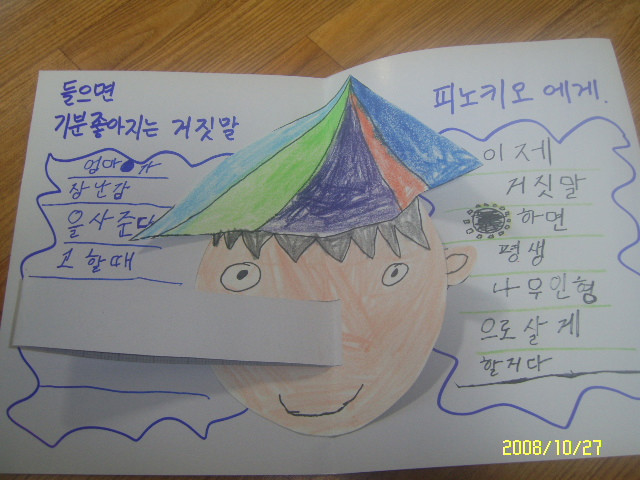 들으면
기분좋아지는 거짓말
엄마가
장난감
을사준다
고 할때
피노키오 에게.
이제
거짓말
하면
평생
나무인형
으로살게
할거다
2008/10/27